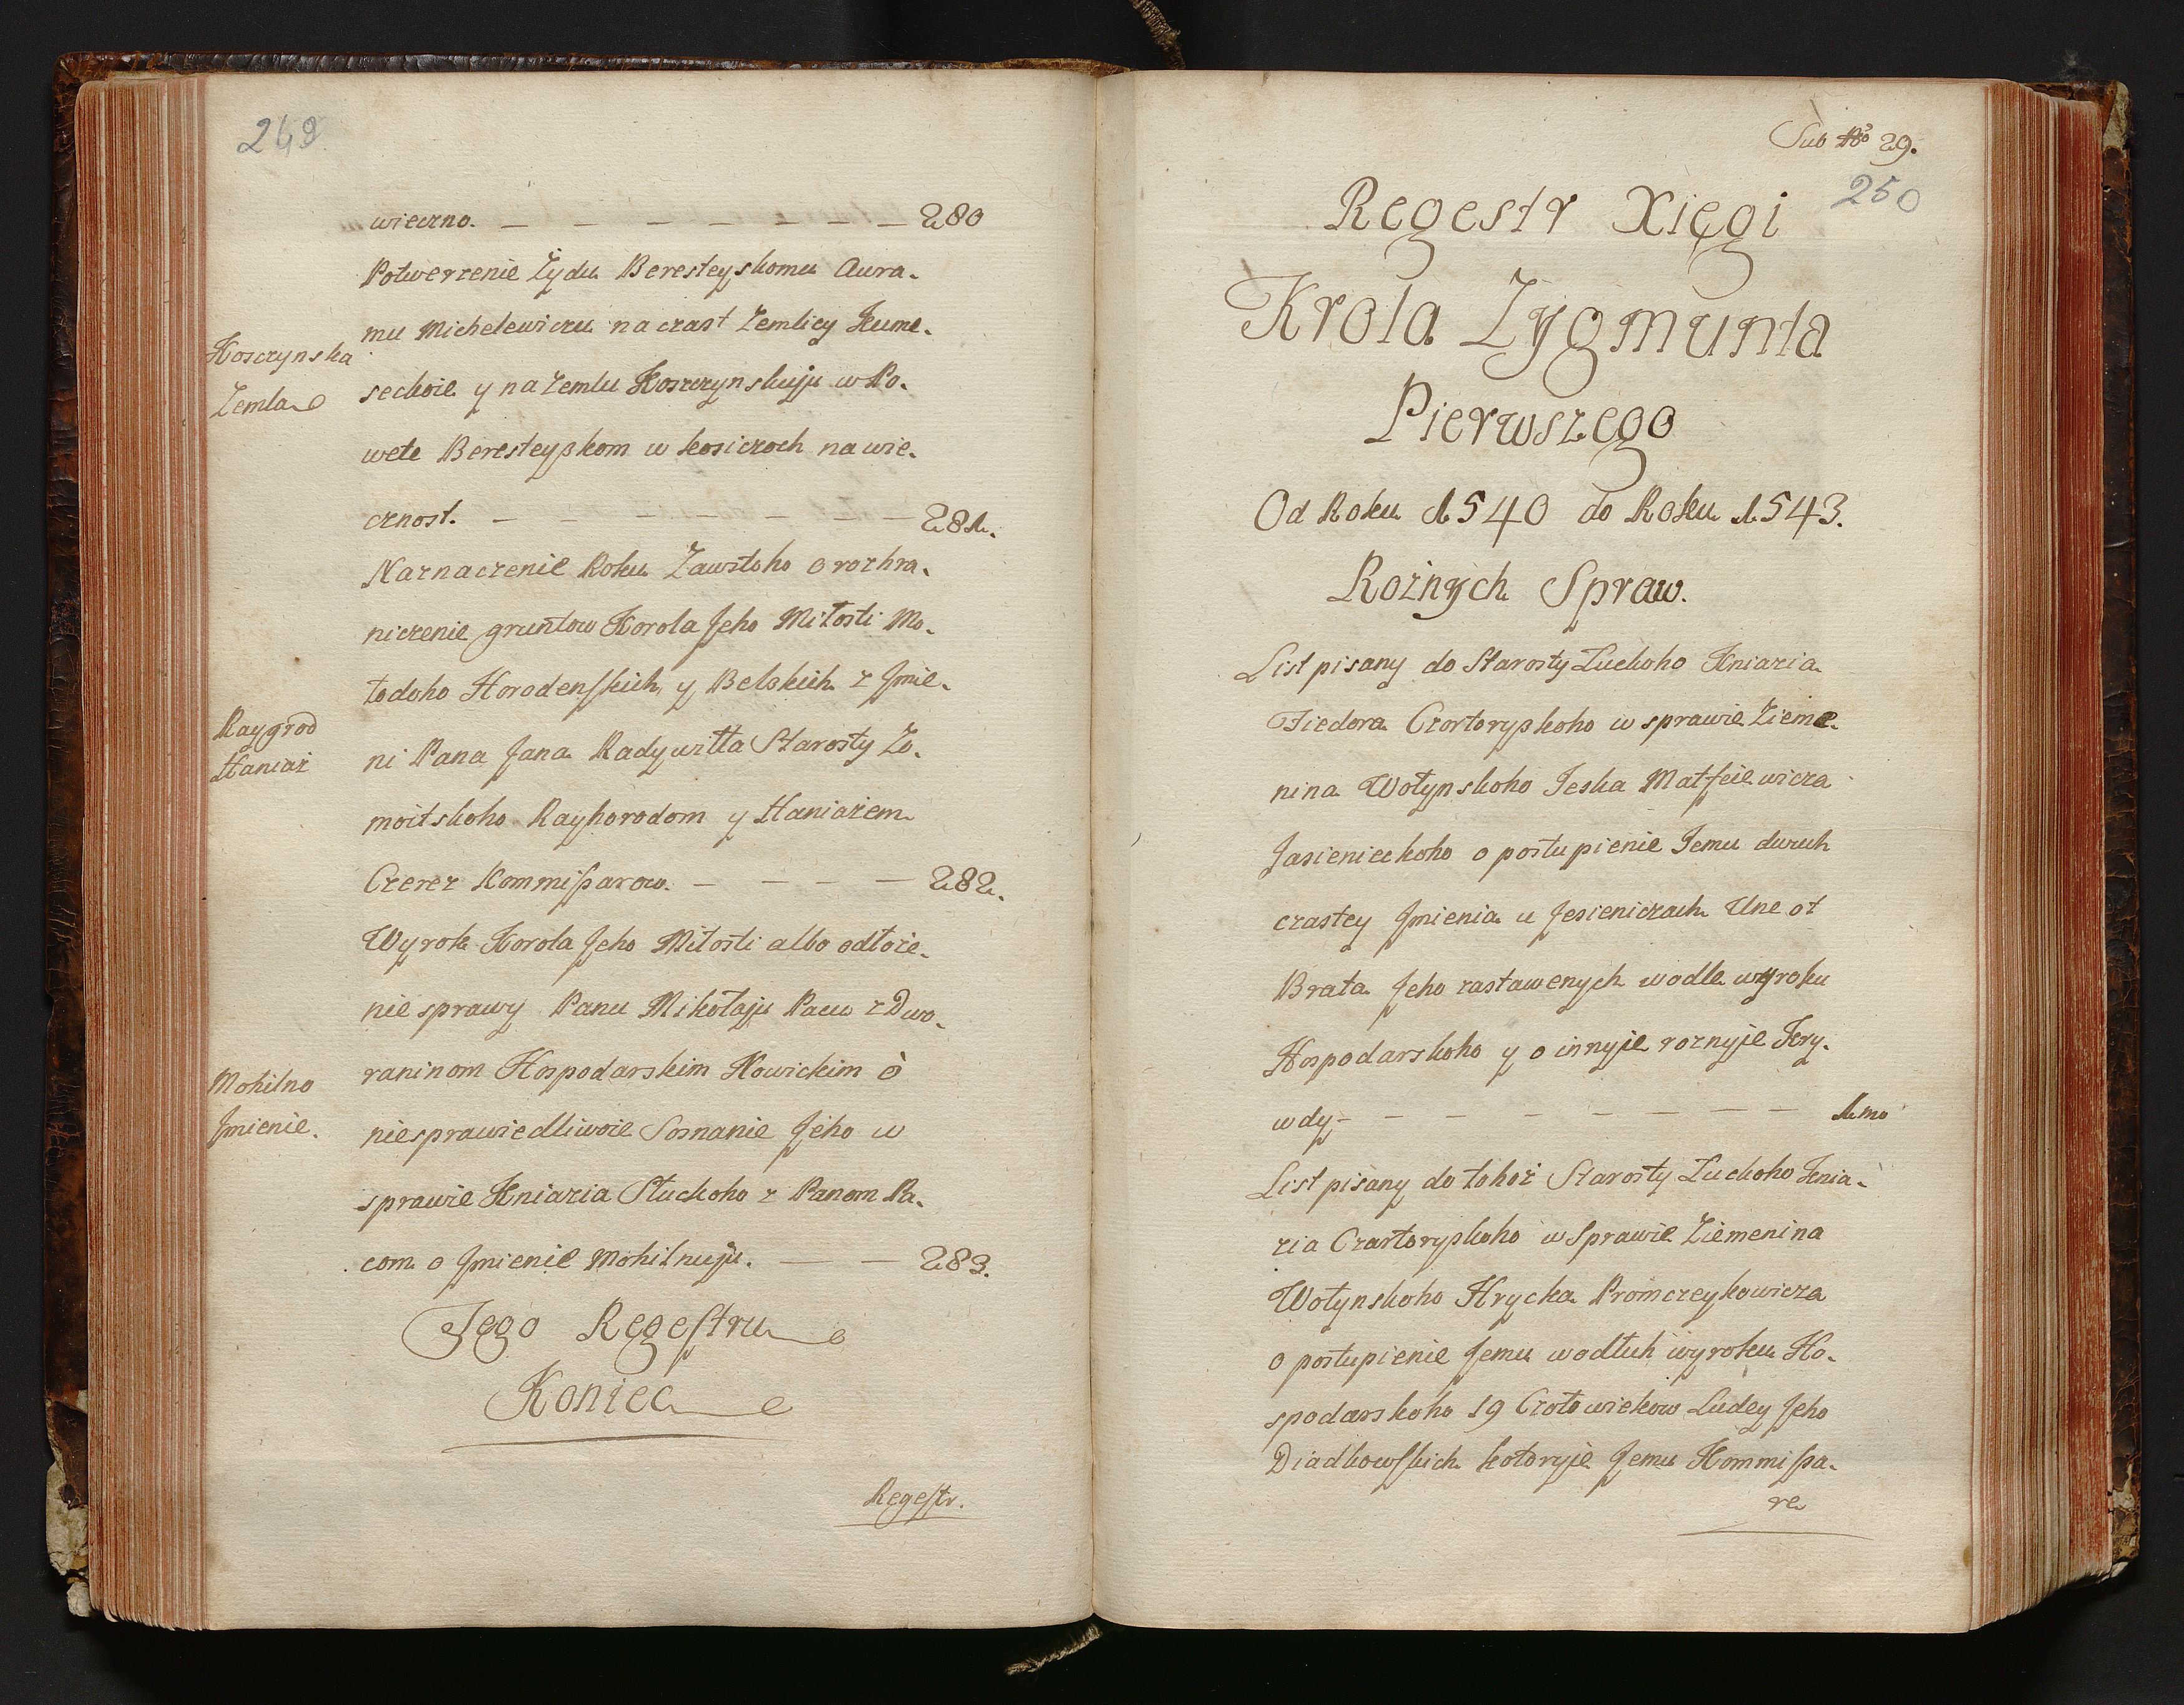 249
wieczno. — — — — — — — 280
Potwerzenie Żydu Beresteyskomu Awra-
mu Michelewiczu na czast Zemlicy Kume-
Kosczynska
seckoie y na Zemlu Koszczynskuju w Po-
Zemla
wete Beresteyskom w kosiczoch na wie-
cznost. — — — — — — — 281.
Naznaczenie Roku Zawitoho o rozhra-
niczenie gruntow Korola Jeho Miłosti Mo-
łodoho Horodenskich y Belskich z Jmie-
Raygrod
ni Pana Jana Radywiłła Starosty Żo-
Haniąż
moitskoho Rayhorodom y Haniażem
Czerez Kommissarow. — — — — 282.
Wyrok Korola Jeho Miłosti albo odłoże-
nie sprawy Panu Mikołaju Pacu z Dwo-
Mohilno
raninom Hospodarskim Nowickim ò
Jmienie.
niesprawiedliwoie Soznanie Jeho w
sprawie Kniazia Słuckoho z Panom Pa-
com o Jmienie Mohilnuju. — — 283.
Tego Regestru
Koniec
Regestr.
Sub No 29.
250
Regestr Xięgi
Krola Zygmunta
Pierwszego
Od Roku 1540 do Roku 1543.
Rożnych Spraw.
List pisany do Starosty Łuckoho Kniazia
Fiedora Czortoryskoho w sprawie Zieme-
nina Wołynskoho Jeska Matfeiewicza
Jasienieckoho o postupienie Jemu dwuch
czastey Jmienia u Jesieniczach Une ot
Brata Jeho zastawenych wodle wyroku
Hospodarskoho y o innyje roznyje Kry-
wdy — — — — — — — 1mo
List pisany do tohoż Starosty Łuckoho Knia-
zia Czartoryskoho w Sprawie Ziemenina
Wołynskoho Hrycka Promczeykowicza
o postupienie Jemu wodłuh wyroku Ho-
spodarskoho 19 Czołowiekow Ludey Jeho
Diadkowskich kotoryje Jemu Kommissa-
re